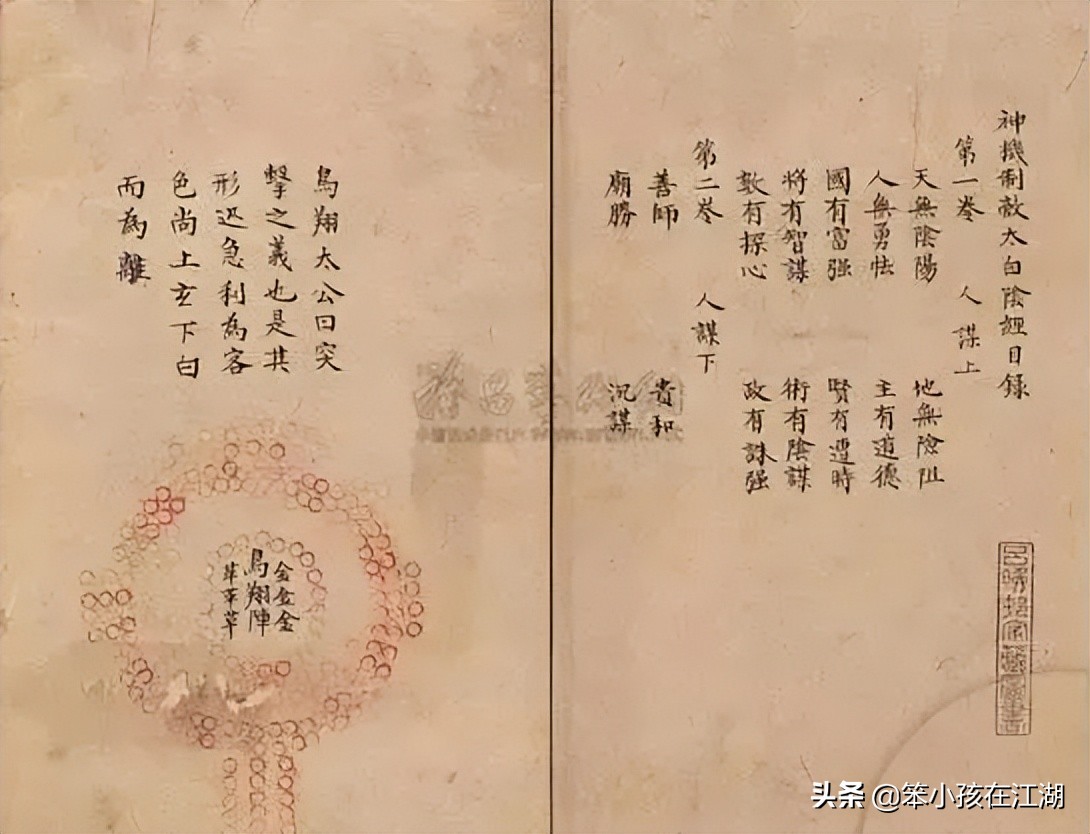 神機制敵太白陰經目録
第一卷 人謀上
天無陰陽 地無險阻
人無勇怯 主有道德
國有富强 賢有遭時
將有智謀 術有陰謀
數有探心 政有誅强
第二卷 人謀下
善師 貴和
廟勝 沉謀
鳥翔太公曰突
擊之義也是其
形迅急利為客
色尚上玄下白
而為離
金金金
鳥翔陣
革革革
头条 @笨小孩在江湖